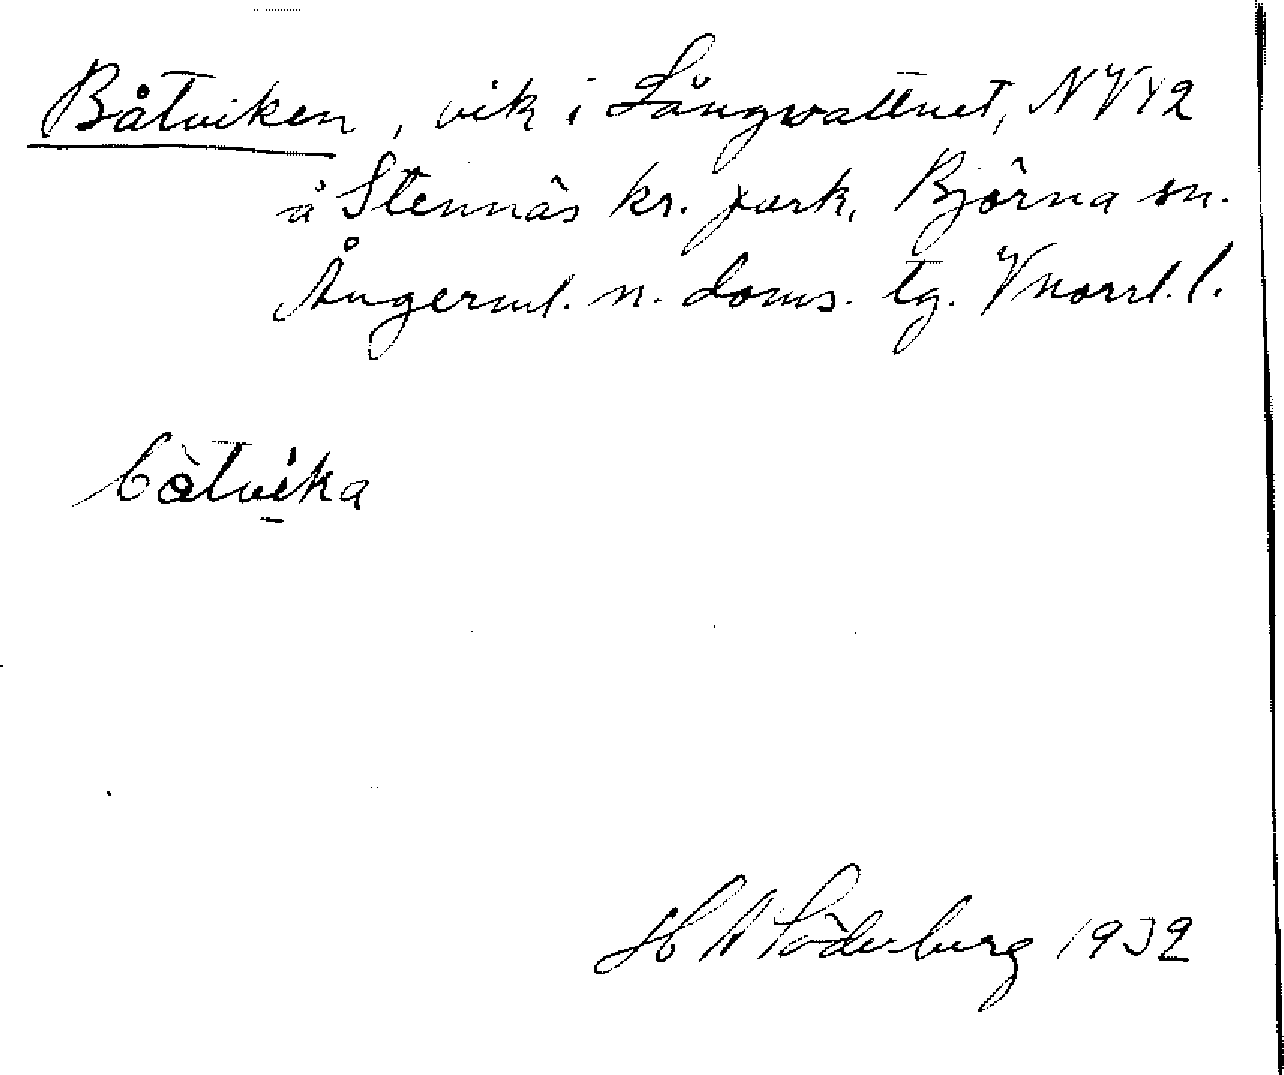 Båtviken, vik i Långvattnet, NV12
å Stennäs kr. park, Björna sn.
Ångerml. n. doms. tg. Vnorrl. l.
bàtvika
H A Söderberg 1932